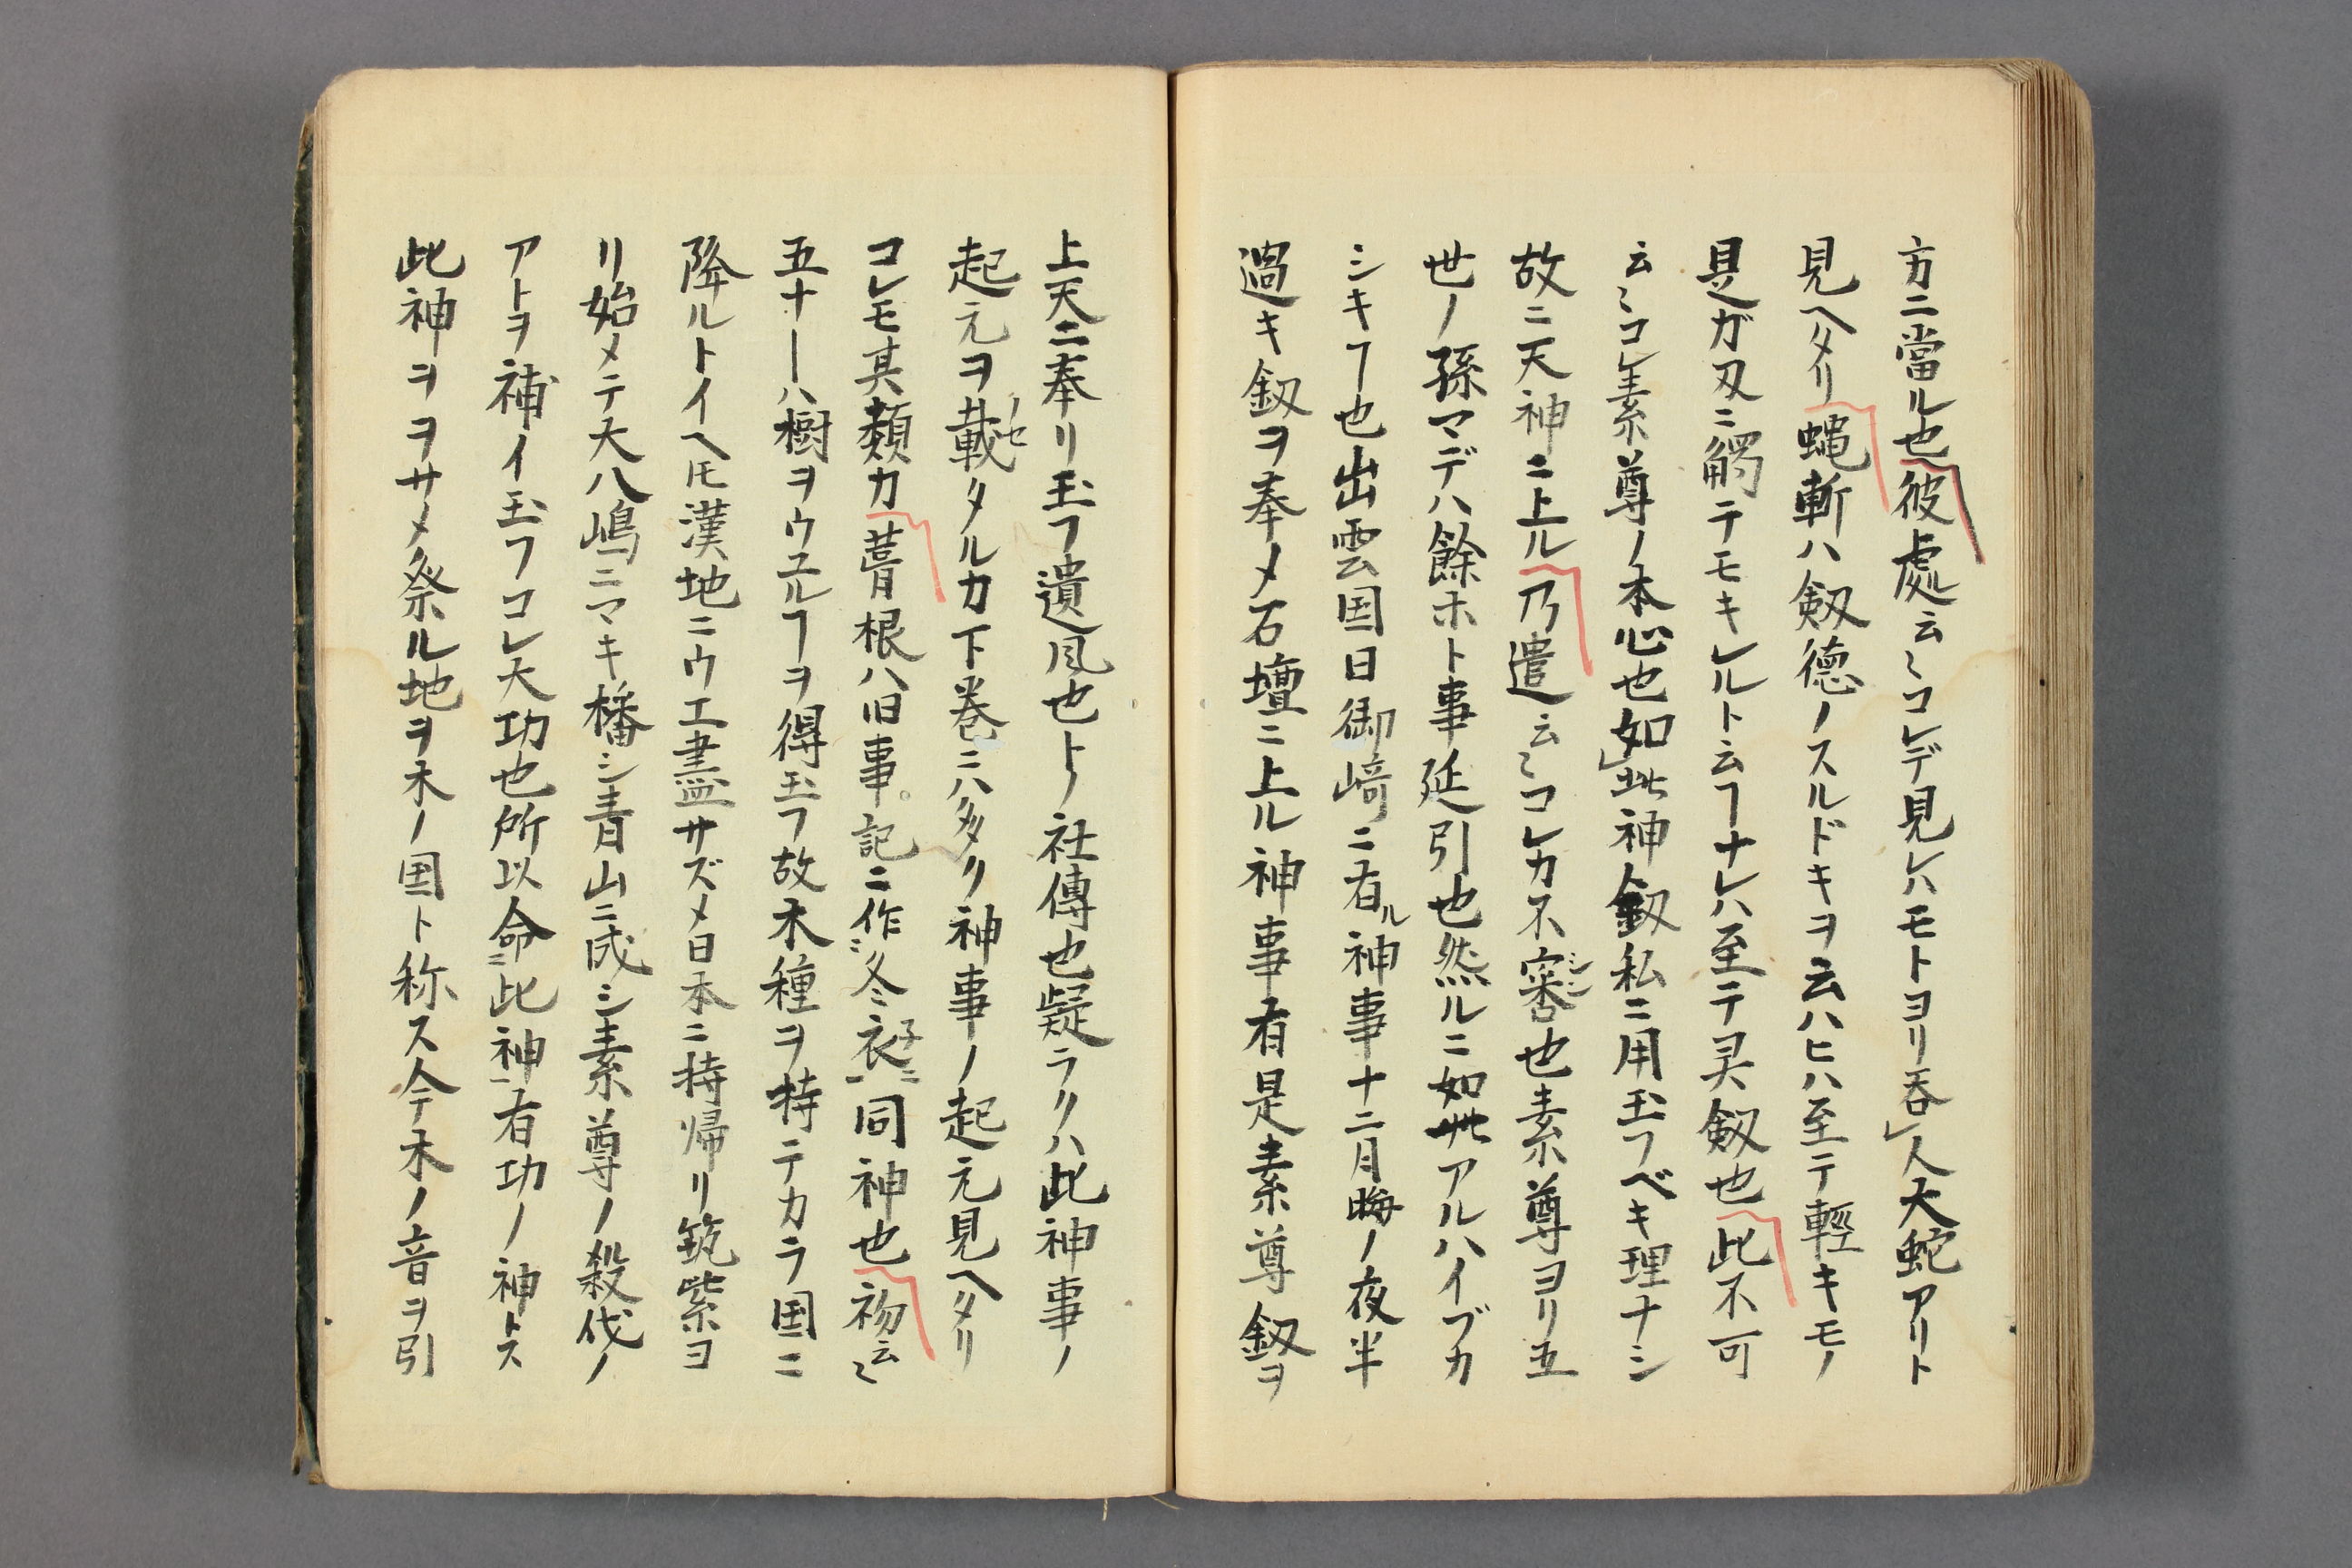 方ニ當ル也彼處云〻コレデ見レハモトヨリ呑人大蛇アリト
見ヘタリ蝿斬ハ剱徳ノスルドキヲ云ハヒハ至テ輕キモノ
是ガ刄ニ觸テモキレルト云フナレハ至テ灵剱也此不可
云〻コレ素尊ノ本心也如此神釼私ニ用玉フベキ理ナシ
故ニ天神ニ上ル乃遣云〻コレカ不審也素尊ヨリ五
世ノ孫マデハ餘ホト事延引也然ルニ如此アルハイブカ
シキヿ也出雲国日御﨑ニ有ル神事十二月晦ノ夜半
過キ釼ヲ奉メ石壇ニ上ル神事有是素尊釼ヲ
上天ニ奉リ玉フ遺風也トノ社傳也疑ラクハ此神事ノ
起元ヲ載タルカ下巻ニハ多クリ神事ノ起元見ヘタリ
コレモ其類カ葺根ハ旧事記ニ作冬衣同神也初云〻
五十ーハ樹ヲウユルヿヲ得玉フ故木種ヲ持テカラ国ニ
降ルトイヘ𪜈漢地ニウエ盡サズメ日本ニ持帰リ筑紫ヨ
リ始メテ大八嶋ニマキ播シ青山ニ成シ素尊ノ殺伐ノ
アトヲ補イ玉フコレ大功也所以命此神有功ノ神トス
此神ヲヲサメ祭ル地ヲ木ノ国ト称ス今木ノ音ヲ引